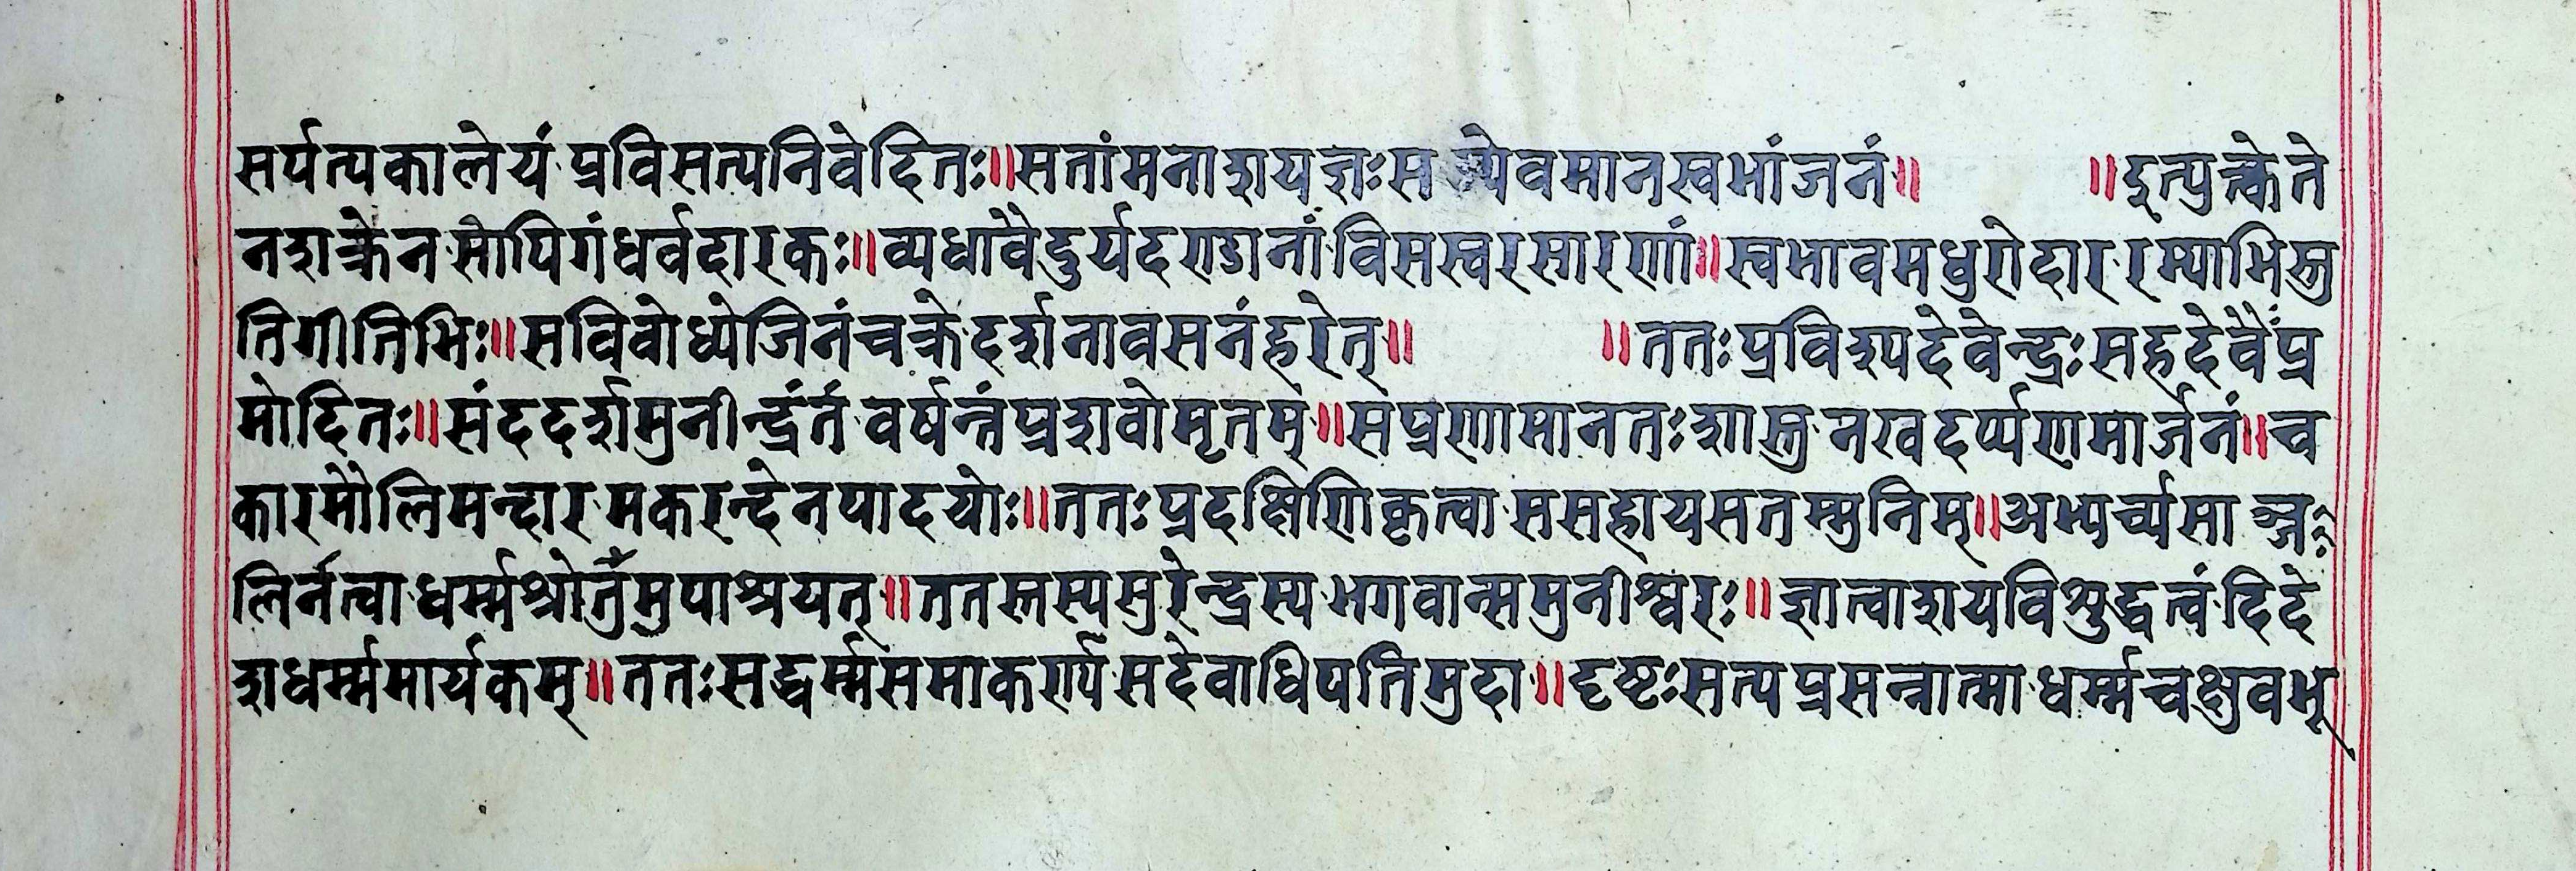 सर्पत्यकालेयं प्रविसत्यनिवेदितः॥सतांमनाशयज्ञःस व्येवमानस्वभांजनं॥ ॥इत्युक्तेते
नशक्रेन सोपिगंधर्वदारकः॥व्यधावैदुर्यदण्डानां विसस्वरसारणां॥स्वभावमधुरोदार रम्याभिस्तु
तिगीतिभिः॥सविवोध्येजिनंचक्रे दर्शनावसनंहरेत्॥ ॥ततःप्रविश्यदेवेन्द्रःसहदेवैःप्र
मोदितः॥संददर्शमुनीन्द्रंतं वर्षन्तंप्रशवोमृतम्॥सप्रणामानतःशास्तु नखदर्प्पणमार्जनं॥च
कारमौलिमन्दार मकरन्देनपादयोः॥ततःप्रदक्षिणिकृत्वा ससहायसतम्मुनिम्॥अभ्यर्च्यसा ञ्ज
लिर्नत्वा धर्म्मश्रोतुँमुपाश्रयत्॥ततस्तस्यसुरेन्द्रस्य भगवान्समुनीश्वरः॥ज्ञात्वाशयविशुद्धत्वं दिदे
शधर्म्ममार्यकम्॥ततःसद्धर्म्मसमाकर्ण्य सदेवाधिपतिमुदा॥दृष्टःसत्यप्रसन्नात्मा धर्म्मचक्षुवभू